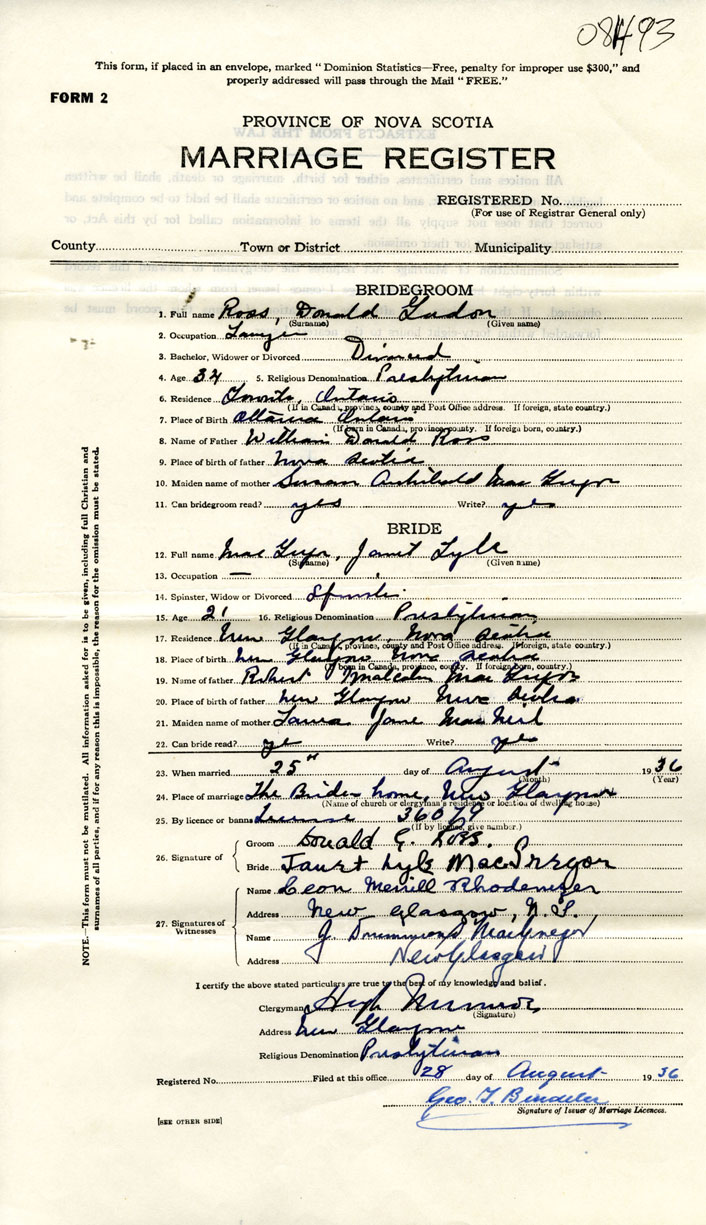 This form, if placed in an envelope, marked "Dominion Statistics—Free, penalty for improper use $300," and
properly addressed will pass through the Mail "FREE."
FORM 2
PROVINCE OF NOVA SCOTIA
MARRIAGE REGISTER
REGISTERED No.
(For use of Registrar General only)
County Town or District Municipality
BRIDEGROOM
1. Full name Ross, Donald
(Surname) (Given name)
2. Occupation Lawyer
3. Bachelor, Widower or Divorced Divorced
4. Age 34 5. Religious Denomination Presbyterian
6. Residence Toronto, Ontario
(If in Canada, province, county and Post Office address. If foreign, state country.)
7. Place of Birth Ottawa Ontario
(If born in Canada, province, county. If foreign born, country.)
8. Name of Father William Donald Ross
9. Place of birth of father Nova Scotia
10. Maiden name of mother Susan Archibald Mac Gregor
11. Can bridegroom read? yes Write? yes
BRIDE
12. Full name Mac Gregor, Janet Lyle
(Surname) (Given name)
13. Occupation —
14. Spinster, Widow or Divorced Spinster
15. Age 21 16. Religious Denomination Presbyterian
17. Residence New Glasgow, Nova Scotia
(If in Canada, province, county and Post Office address. If foreign, state country.)
18. Place of birth New Glasgow Nova Scotia
(If born in Canada, province, county. If foreign born, country.)
19. Name of father Robert Malcolm Mac Gregor
20. Place of birth of father New Glasgow Nova Scotia
21. Maiden name of mother Laura Jane MacNeil
22. Can bride read? yes Write? yes
23. When married 25" day of August 1936
(Month) (Year)
24. Place of marriage The Brides home, New Glasgow
(Name of church or clergyman's residence or location of dwelling house)
25. By licence or banns License 36079
(If by license, give number.)
26. Signature of
Groom Donald G. Ross.
Bride Janet Lyle MacGregor
27. Signatures of Witnesses
Name Leon Merrill Rhodenizer
Address New Glasgow, N.S.,
Name J. Drummond MacGregor
Address New Glasgow
I certify the above stated particulars are true to the best of my knowledge and belief.
Clergyman Hugh
(Signature)
Address New Glasgow
Religious Denomination Presbyterian
Registered No. Filed at this office 28 day of August 1936
Geo. T.
Signature of Issuer of Marriage Licences.
[SEE OTHER SIDE]
NOTE.—This form must not be mutilated. All information asked for is to be given, including full Christian and
surnames of all parties, and if for any reason this is impossible, the reason for the omission must be stated.